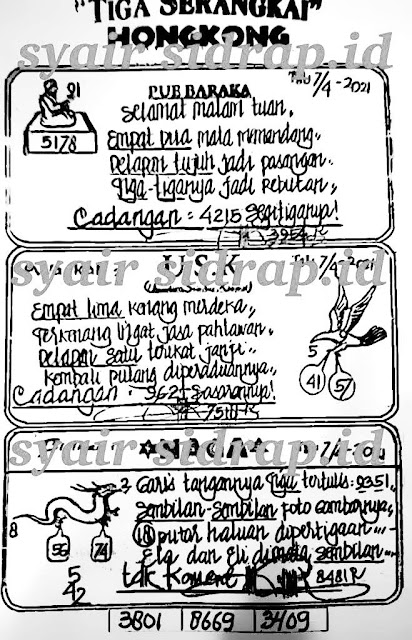 "TIGA SERANGKAI"
HONGKONG
syair sidrap.id
7/4-2021
91
PUB BARAKA
Selamat malam tuan,
5178
Empat dua mata memandang,,
Delapan tujuh jadi pasangan.
Tiga-tiganya jadi rebutan,,
Cadangan : 4215 segitiganya!
3954
U.S.K
7/4-2021
syair sidrap.id
Empat lima kenang merdeka,,
Terkenang ingat jasa pahlawan,,
Delapan satu terikat janji,,
5
41 57
Kembali pulang diperaduannya,,
Cadangan : 3624 Sasarannya!
7510
NAGA
7/4-2021
syair sidrap.id
2 Garis tangannya tiga tertulis: 9351
Sembilan-Sembilan foto gambarnya,
8
18 putar haluan dipertigaan
56 74
Ela dan Eli dimata sembilan
5
tdk
8481
42
3801 8669 3409